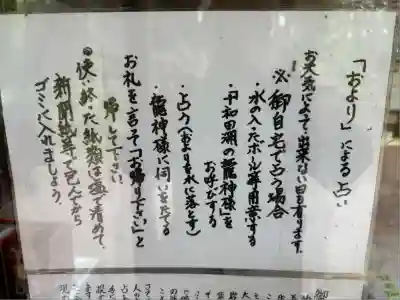 「おより」による占い
お天気によって出来ない日も有ります。
※御自宅で占う場合
・水の入ったボール等用意する
・「十和田湖の龍神様」を
お呼びする
・占う（およりを水に落とす）
・龍神様に伺いをたてる
お礼を言って「お帰り下さい」と
帰して下さい。
◎使い終った紙類は塩で清めて、
新聞紙等で包んでから
ゴミに入れましょう。